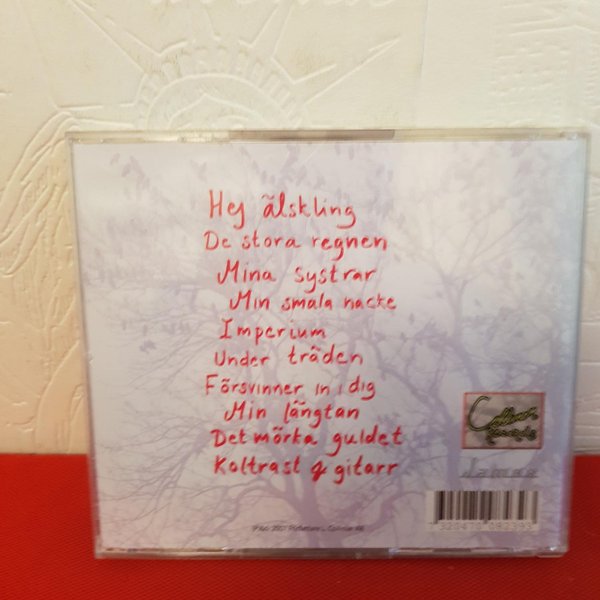 Hej älskling
De stora regnen
Mina systrar
Min smala nacke
Imperium
Under träden
Försvinner in i dig
Min längtan
Det mörka guldet
Koltrast & gitarr
7320470 092393